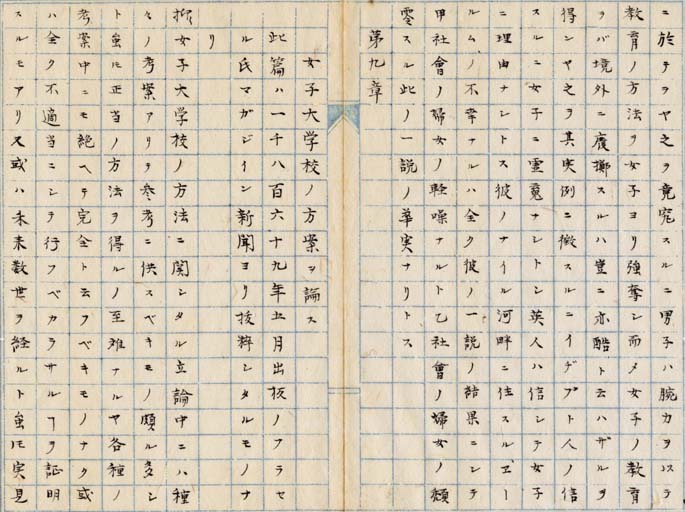 ニ於テヲヤ之ヲ竟究スルニ男子ハ腕力ヲ以テ
教育ノ方法ヲ女子ヨリ強奪シ而メ女子ノ教育
ヲバ境外ニ廃擲スルハ豈ニ亦酷ト云ハザルヲ
得ンヤ之ヲ其実例ニ徴スルニイヂプト人ノ信
スルニ女子ニ霊魂ナシトシ英人ハ信シテ女子
ニ理由ナシトス彼ノナイル河畔ニ住スルヱー
ルムノ不幸ナルハ全ク彼ノ一説ノ結果ニシテ
甲社會ノ婦女ノ軽噪ナルト乙社會ノ婦女ノ頽
零スル此ノ一説ノ華実ナリトス
第九章
女子大学校ノ方案ヲ論ス
此篇ハ一千八百六十九年五月出板ノフラセ
ル氏マガジイン新聞ヨリ抜粹シタルモノナ
リ
抑女子大学校ノ方法ニ関シタル立論中ニハ種
々ノ考案アリテ参考ニ供スベキモノ頗ル多シ
ト虽𪜈正当ノ方法ヲ得ルノ至難ナルヤ各種ノ
考案中ニモ絶ヘテ完全ト云フベキモノナク或
ハ全ク不適当ニシテ行フベカラサルヿヲ証明
スルモアリ又或ハ未来数世ヲ経ルト虽𪜈実見